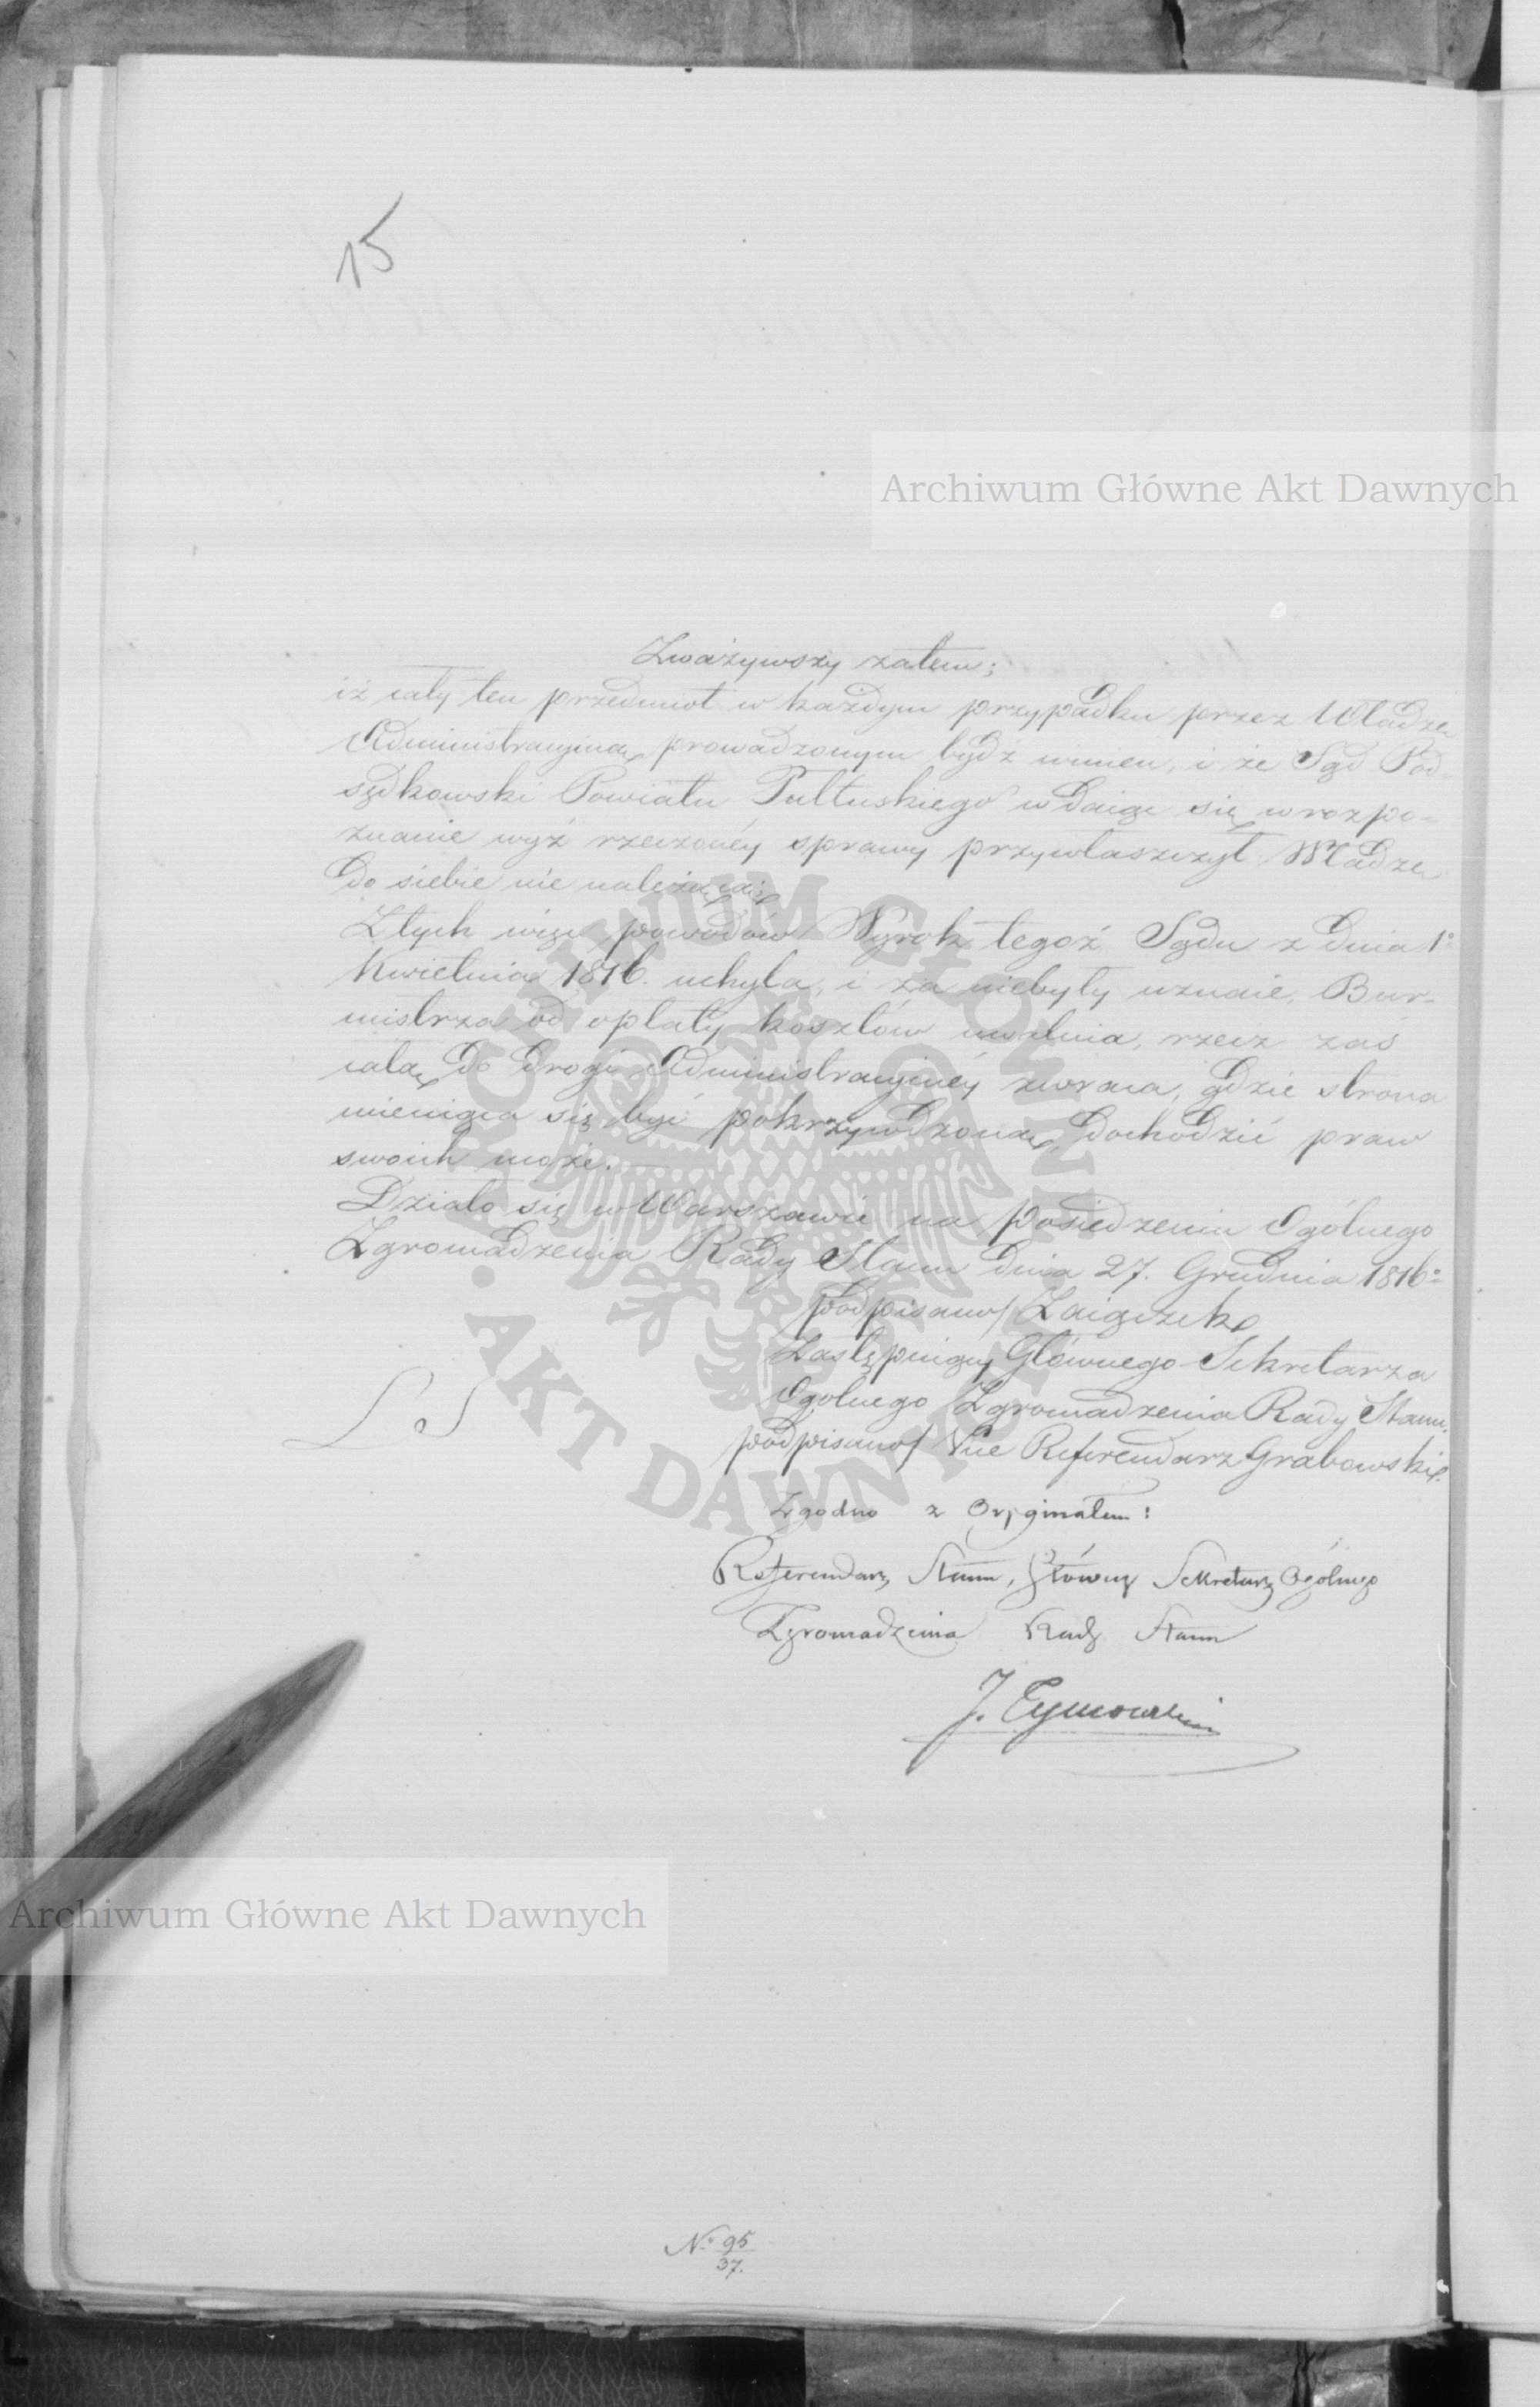 15
Archiwum Główne Akt Dawnych
Zważywszy zatem;
iż cały ten przedmiot w każdym przypadku przez Władzę
Administracyiną prowadzonym bydź winien, i że Sąd Pod-
sędkowski Powiatu Pułtuskiego wdaiąc się w rozpo-
znanie wyż rzeczonéy sprawy przywłaszczył Władzę
do siebie nie należącą;
Z tych więc powodów Wyrok tegoż Sądu z dnia 1o
Kwietnia 1816. uchyla, i za niebyły uznaie, Bur-
mistrza od opłaty kosztów uwalnia, rzecz zaś
całą do drogi Administracyinéy zwraca, gdzie strona
mieniąca się być pokrzywdzoną, dochodzić praw
swoich może.
Działo się w Warszawie na posiedzeniu Ogólnego
Zgromadzenia Rady Stanu dnia 27. Grudnia 1816o
podpisano/ Zaiączek
Zastępuiący Głównego Sekretarza
Ogólnego Zgromadzenia Rady Stanu.
L S
podpisano/ Vice Referendarz Grabowski.
Zgodno z Oryginałem:
Referendarz Stanu, Główny Sekretarz Ogólnego
Zgromadzenia Rady Stanu
J. Tymowski
Archiwum Główne Akt Dawnych
No 95/37.
ARCHIWUM GŁÓWNE AKT DAWNYCH